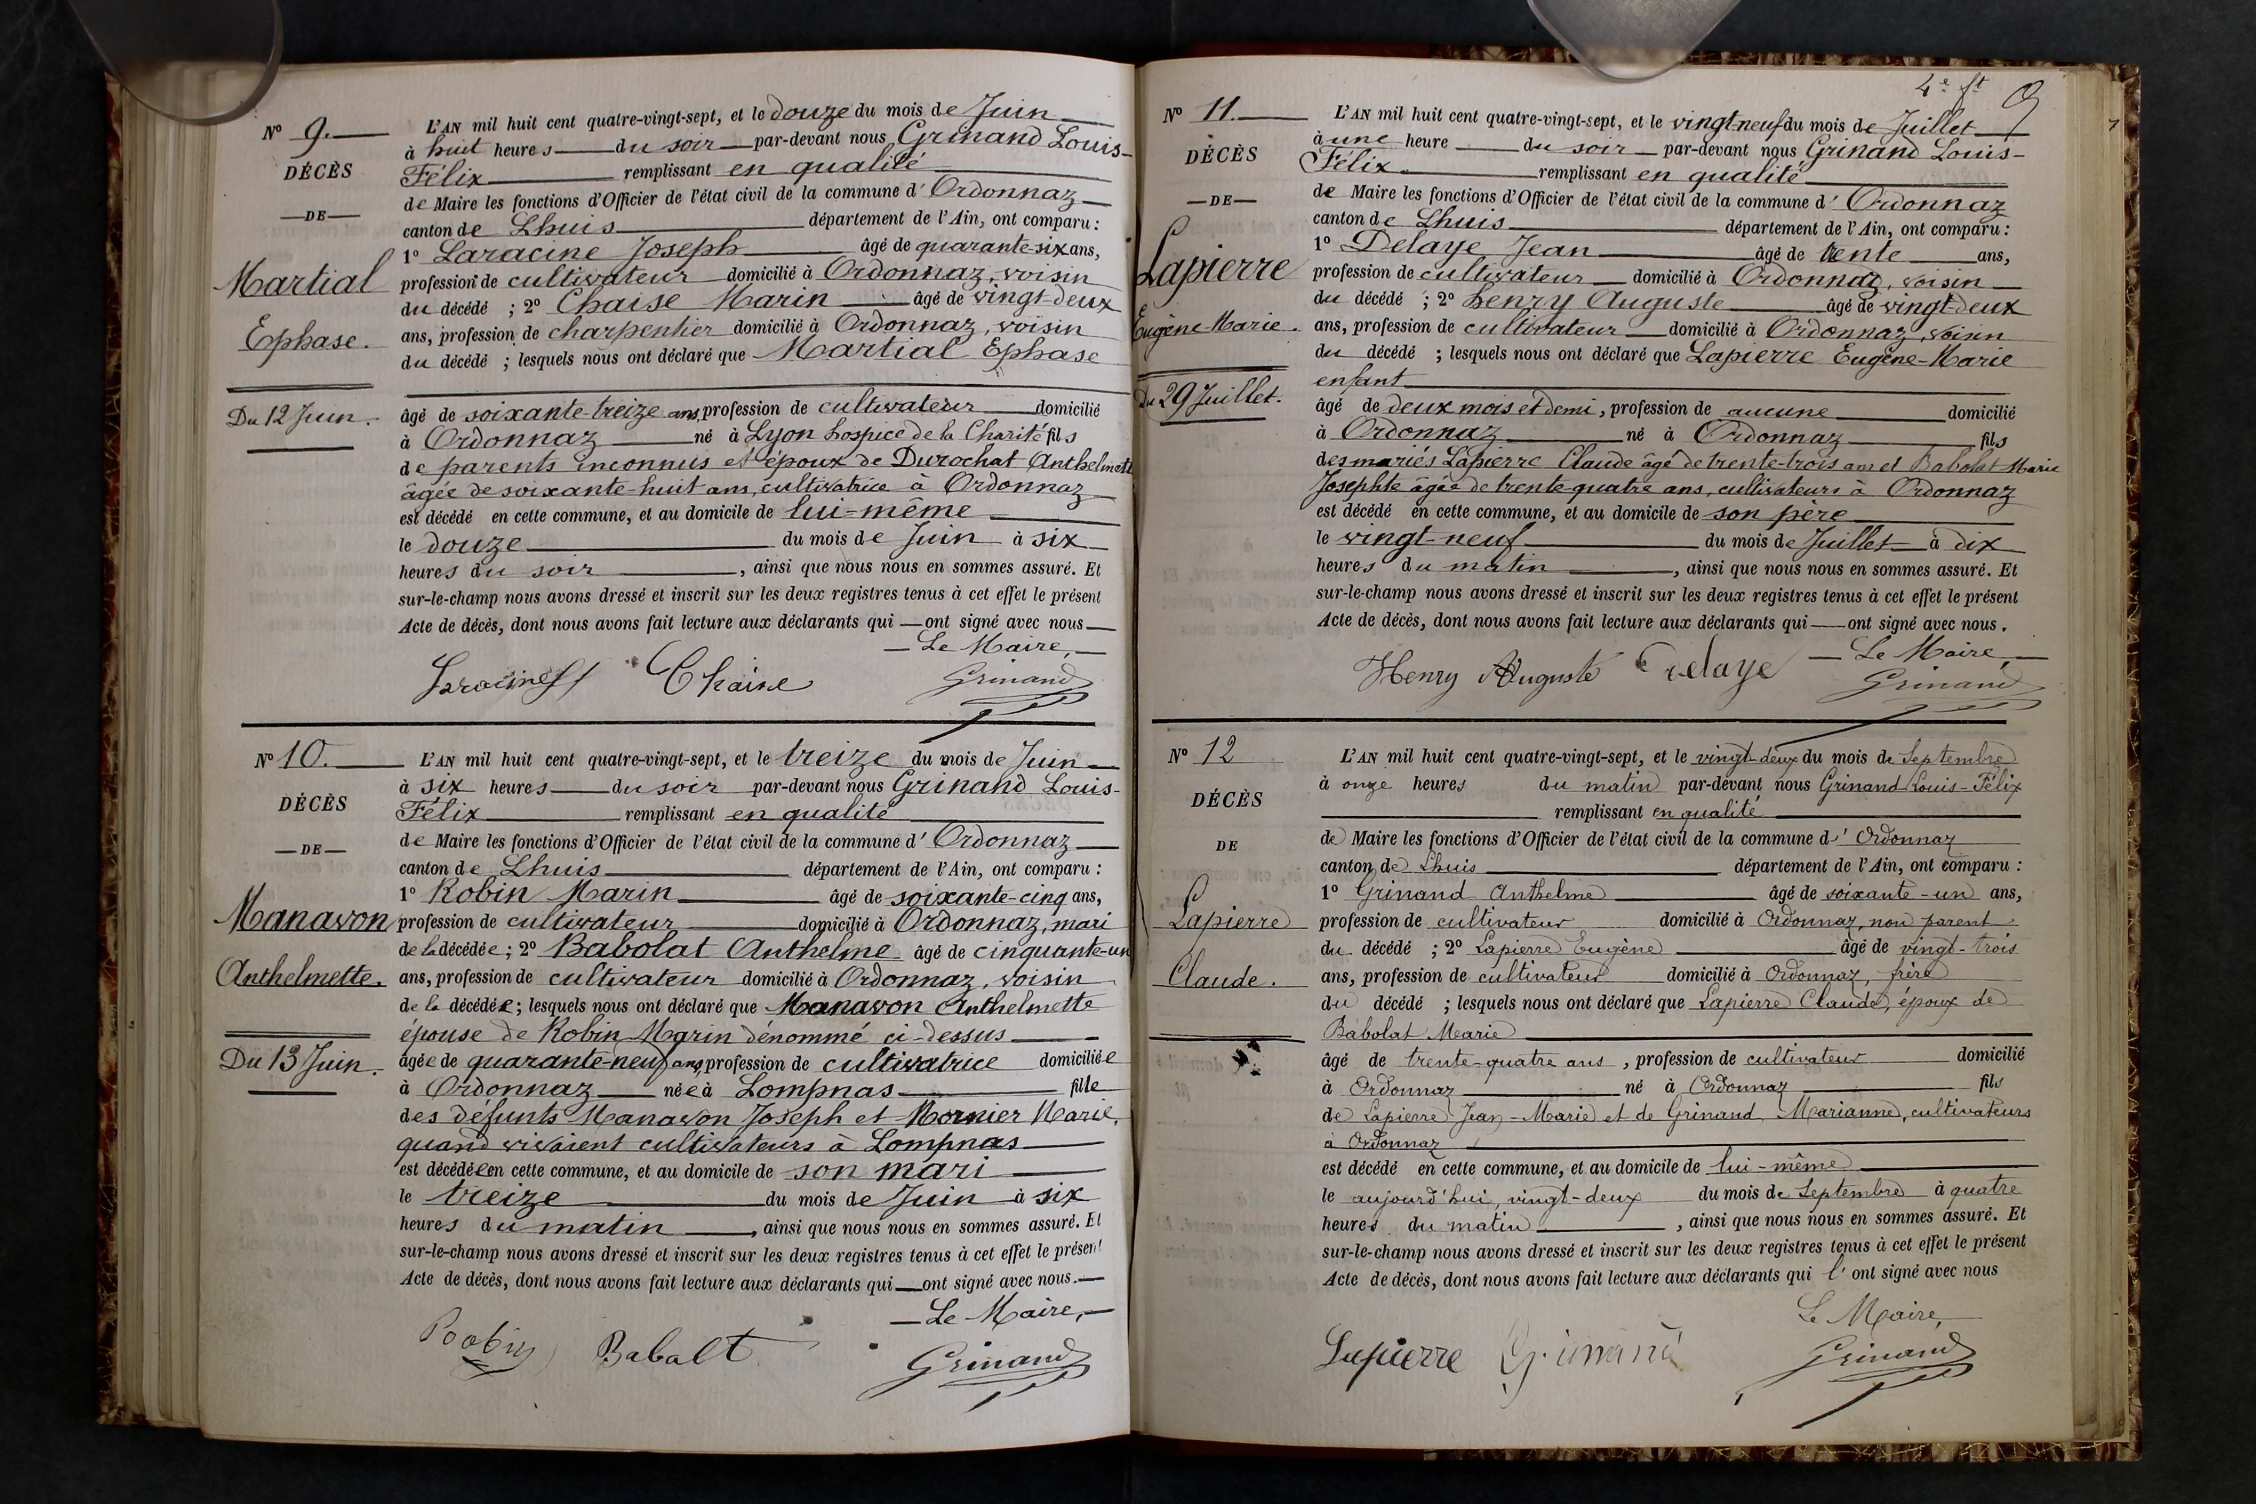 Nº 9.
DÉCÈS
DE
Martial
Ephase.
Du 12 Juin.
L'AN mil huit cent quatre-vingt-sept, et le douze du mois de Juin
à huit heures du soir par-devant nous Grinand Louis-
Félix remplissant en qualité
de Maire les fonctions d'Officier de l'état civil de la commune d' Ordonnaz
canton de Lhuis département de l'Ain, ont comparu :
1º Laracine Joseph âgé de quarante-six ans,
profession de cultivateur domicilié à Ordonnaz, voisin
du décédé ; 2º Chaise Marin âgé de vingt-deux
ans, profession de charpentier domicilié à Ordonnaz, voisin
du décédé ; lesquels nous ont déclaré que Martial Ephase
âgé de soixante-treize ans, profession de cultivateur domicilié
à Ordonnaz né à Lyon hospice de la Charité fils
de parents inconnus et époux de Durochat Anthelmette
âgée de soixante-huit ans, cultivatrice à Ordonnaz
est décédé en cette commune, et au domicile de lui-même
le douze du mois de Juin à six
heures du soir, ainsi que nous nous en sommes assuré. Et
sur-le-champ nous avons dressé et inscrit sur les deux registres tenus à cet effet le présent
Acte de décès, dont nous avons fait lecture aux déclarants qui ont signé avec nous
Le Maire,
Chaise Grinand
Nº 10.
DÉCÈS
DE
Manavon
Anthelmette.
Du 13 Juin.
L'AN mil huit cent quatre-vingt-sept, et le treize du mois de Juin
à six heures du soir par-devant nous Grinand Louis-
Félix remplissant en qualité
de Maire les fonctions d'Officier de l'état civil de la commune d' Ordonnaz
canton de Lhuis département de l'Ain, ont comparu :
1º Robin Marin âgé de soixante-cinq ans,
profession de cultivateur domicilié à Ordonnaz, mari
de la décédée ; 2º Babolat Anthelme âgé de cinquante-un
ans, profession de cultivateur domicilié à Ordonnaz, voisin
de la décédée ; lesquels nous ont déclaré que Manavon Anthelmette
épouse de Robin Marin dénommé ci-dessus
âgée de quarante-neuf ans, profession de cultivatrice domiciliée
à Ordonnaz née à Lompnas fille
des défunts Manavon Joseph et Mornier Marie,
quand vivaient cultivateurs à Lompnas
est décédée en cette commune, et au domicile de son mari
le treize du mois de Juin à six
heures du matin, ainsi que nous nous en sommes assuré. Et
sur-le-champ nous avons dressé et inscrit sur les deux registres tenus à cet effet le présent
Acte de décès, dont nous avons fait lecture aux déclarants qui ont signé avec nous.
Le Maire,
Robin Babalt Grinand
4e ft
Nº 11.
DÉCÈS
DE
Lapierre
Eugène Marie.
Du 29 Juillet.
L'AN mil huit cent quatre-vingt-sept, et le vingt-neuf du mois de Juillet
à une heure du soir par-devant nous Grinand Louis-
Félix remplissant en qualité
de Maire les fonctions d'Officier de l'état civil de la commune d' Ordonnaz
canton de Lhuis département de l'Ain, ont comparu :
1º Delaye Jean âgé de trente ans,
profession de cultivateur domicilié à Ordonnaz, voisin
du décédé ; 2º Henry Auguste âgé de vingt-deux
ans, profession de cultivateur domicilié à Ordonnaz, voisin
du décédé ; lesquels nous ont déclaré que Lapierre Eugène-Marie
enfant
âgé de deux mois et demi, profession de aucune domicilié
à Ordonnaz né à Ordonnaz fils
des mariés Lapierre Claude âgé de trente-trois ans et Babolat Marie
Josephte âgée de trente-quatre ans, cultivateurs à Ordonnaz
est décédé en cette commune, et au domicile de son père
le vingt-neuf du mois de Juillet à dix
heures du matin, ainsi que nous nous en sommes assuré. Et
sur-le-champ nous avons dressé et inscrit sur les deux registres tenus à cet effet le présent
Acte de décès, dont nous avons fait lecture aux déclarants qui ont signé avec nous.
Le Maire,
Henry Auguste Delaye Grinand
Nº 12
DÉCÈS
DE
Lapierre
Claude.
L'AN mil huit cent quatre-vingt-sept, et le vingt-deux du mois de Septembre
à onze heures du matin par-devant nous Grinand Louis-Félix
remplissant en qualité
de Maire les fonctions d'Officier de l'état civil de la commune d' Ordonnaz
canton de Lhuis département de l'Ain, ont comparu :
1º Grinand Anthelme âgé de soixante-un ans,
profession de cultivateur domicilié à Ordonnaz, non parent
du décédé ; 2º Lapierre Eugène âgé de vingt-trois
ans, profession de cultivateur domicilié à Ordonnaz, frère
du décédé ; lesquels nous ont déclaré que Lapierre Claude, époux de
Babolat Marie
âgé de trente-quatre ans, profession de cultivateur domicilié
à Ordonnaz né à Ordonnaz fils
de Lapierre Jean-Marie et de Grinand Marianne, cultivateurs
à Ordonnaz
est décédé en cette commune, et au domicile de lui-même
le aujourd'hui, vingt-deux du mois de Septembre à quatre
heures du matin, ainsi que nous nous en sommes assuré. Et
sur-le-champ nous avons dressé et inscrit sur les deux registres tenus à cet effet le présent
Acte de décès, dont nous avons fait lecture aux déclarants qui l' ont signé avec nous
Le Maire,
Lapierre Grinand Grinand